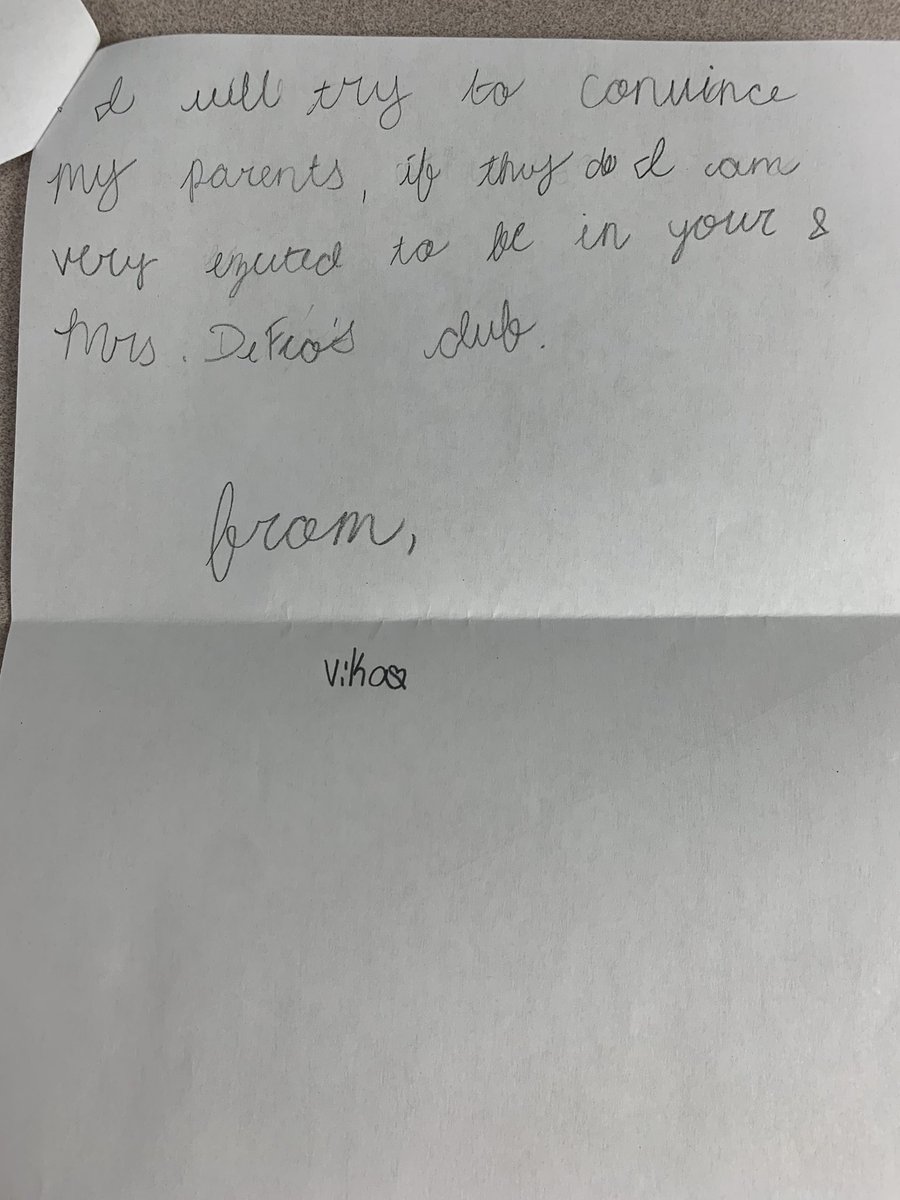 I will try to convince
my parents, if they do I am
very exuted to be in your &
Mrs. DeFeo's club.
from,
Vikas